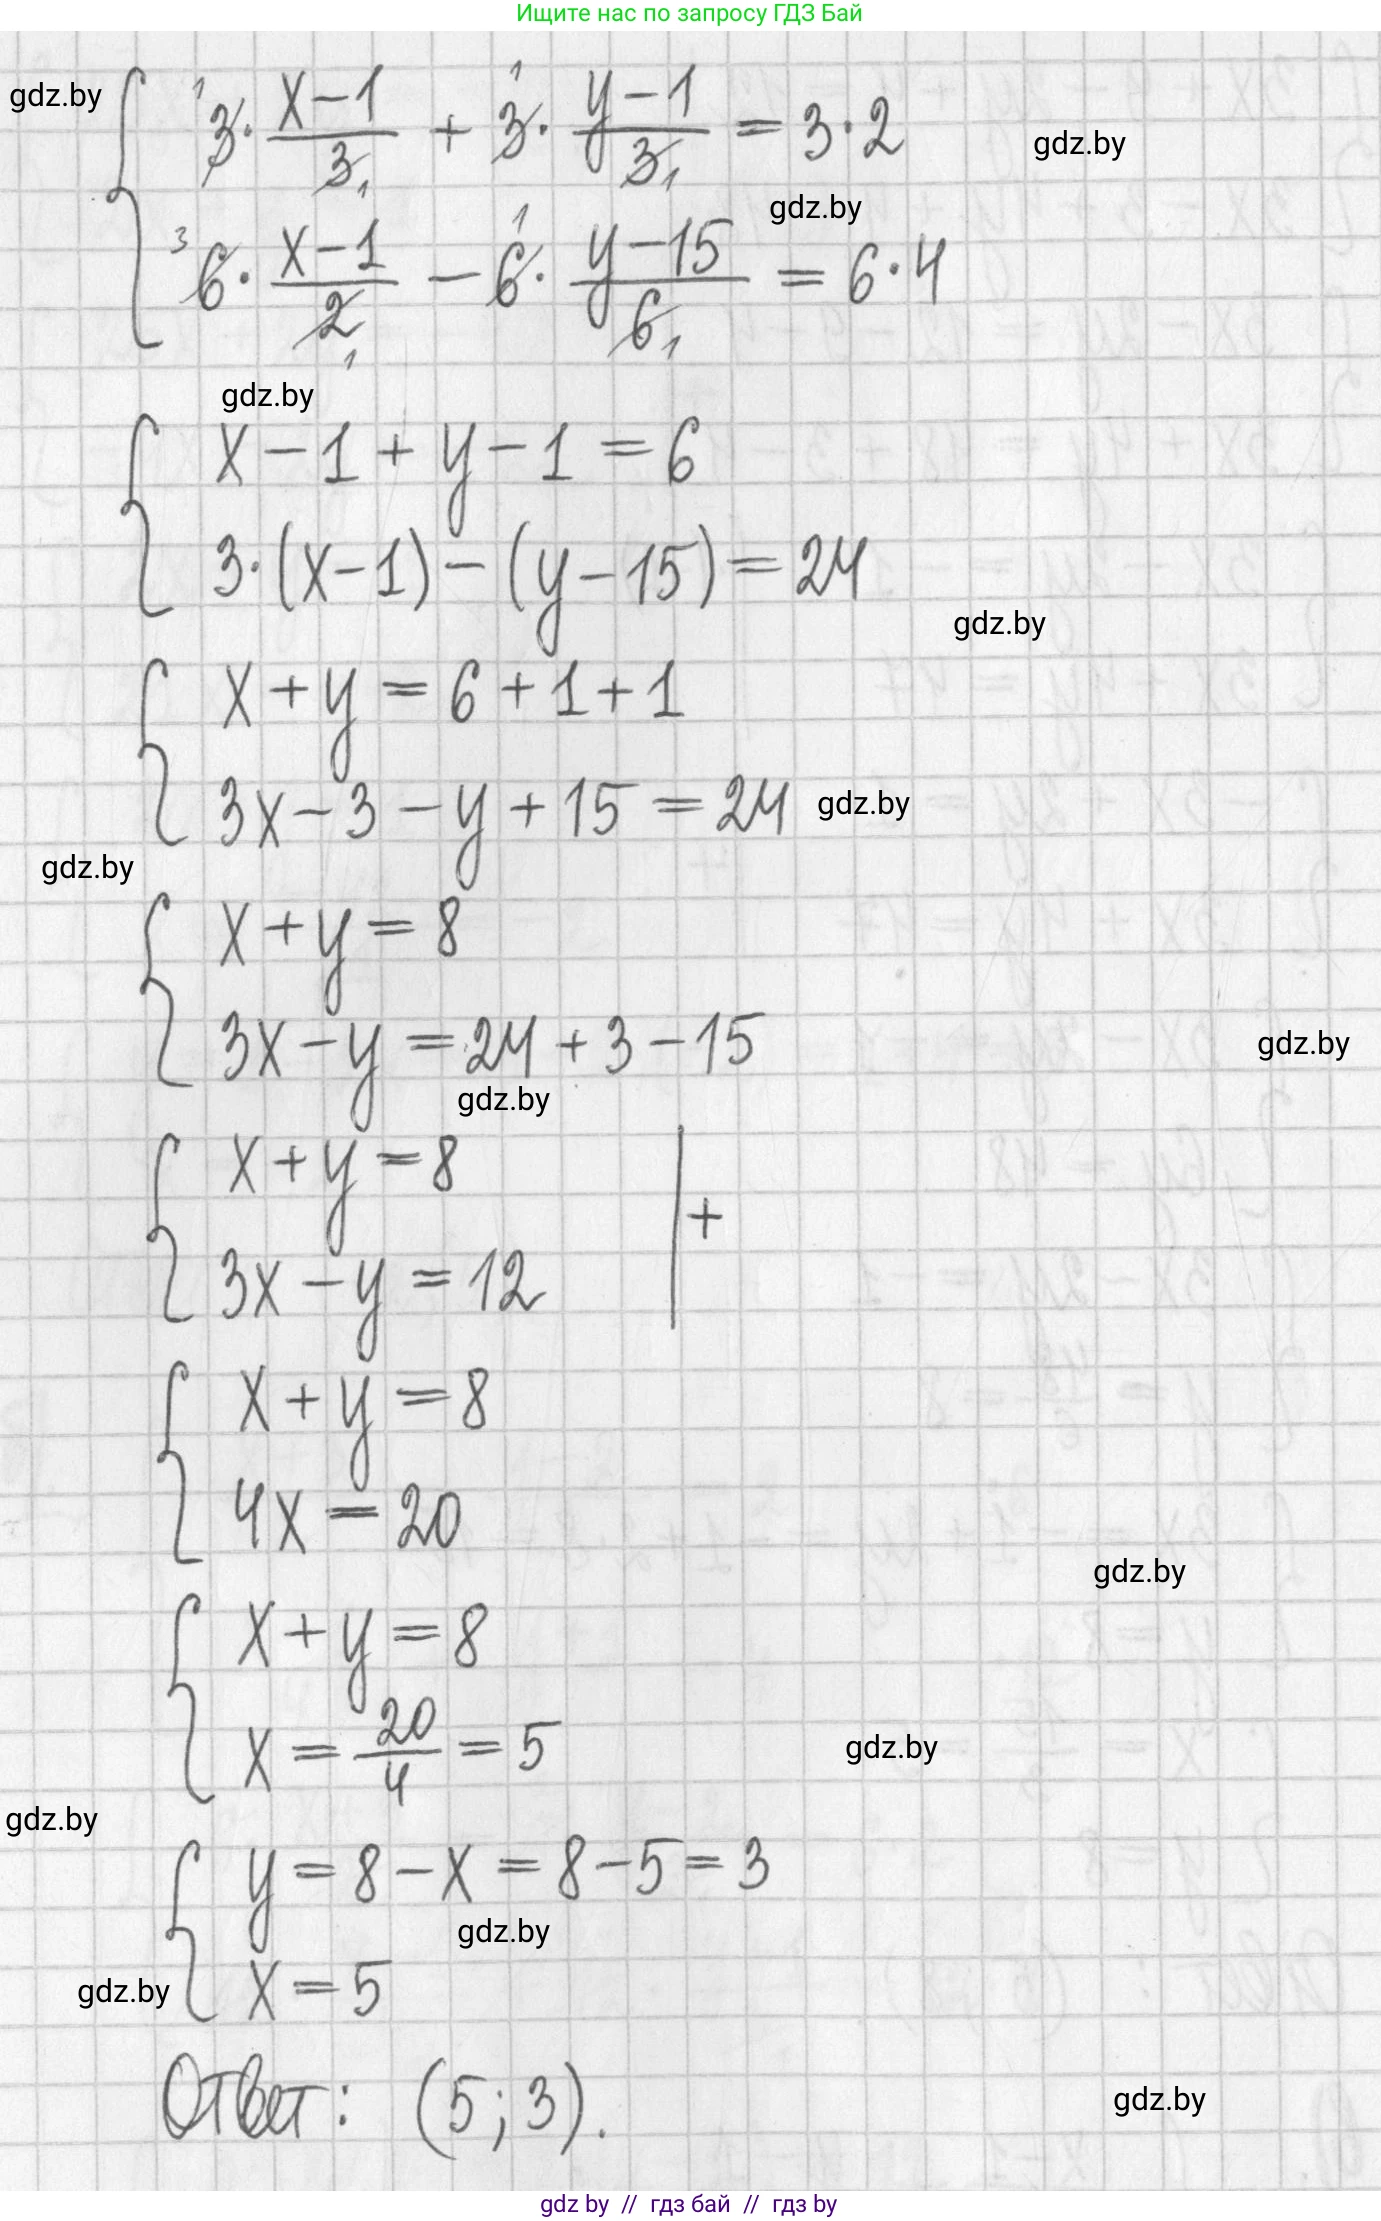 Ищите нас по запросу ГДЗ Бай
gdz.by
3 · (x-1)/3 + 3 · (y-1)/3 = 3·2
1 1 1 1
gdz.by
gdz.by
6 · (x-1)/2 - 6 · (y-15)/6 = 6·4
3 1 1 1
gdz.by
x - 1 + y - 1 = 6
3·(x-1) - (y-15) = 24
gdz.by
x + y = 6 + 1 + 1
3x - 3 - y + 15 = 24
gdz.by
gdz.by
x + y = 8
3x - y = 24 + 3 - 15
gdz.by
gdz.by
x + y = 8
3x - y = 12 | +
x + y = 8
4x = 20
gdz.by
x + y = 8
x = 20/4 = 5
gdz.by
gdz.by
y = 8 - x = 8 - 5 = 3
gdz.by
x = 5
gdz.by
Ответ: (5; 3).
gdz.by
gdz by // гдз бай // гдз by